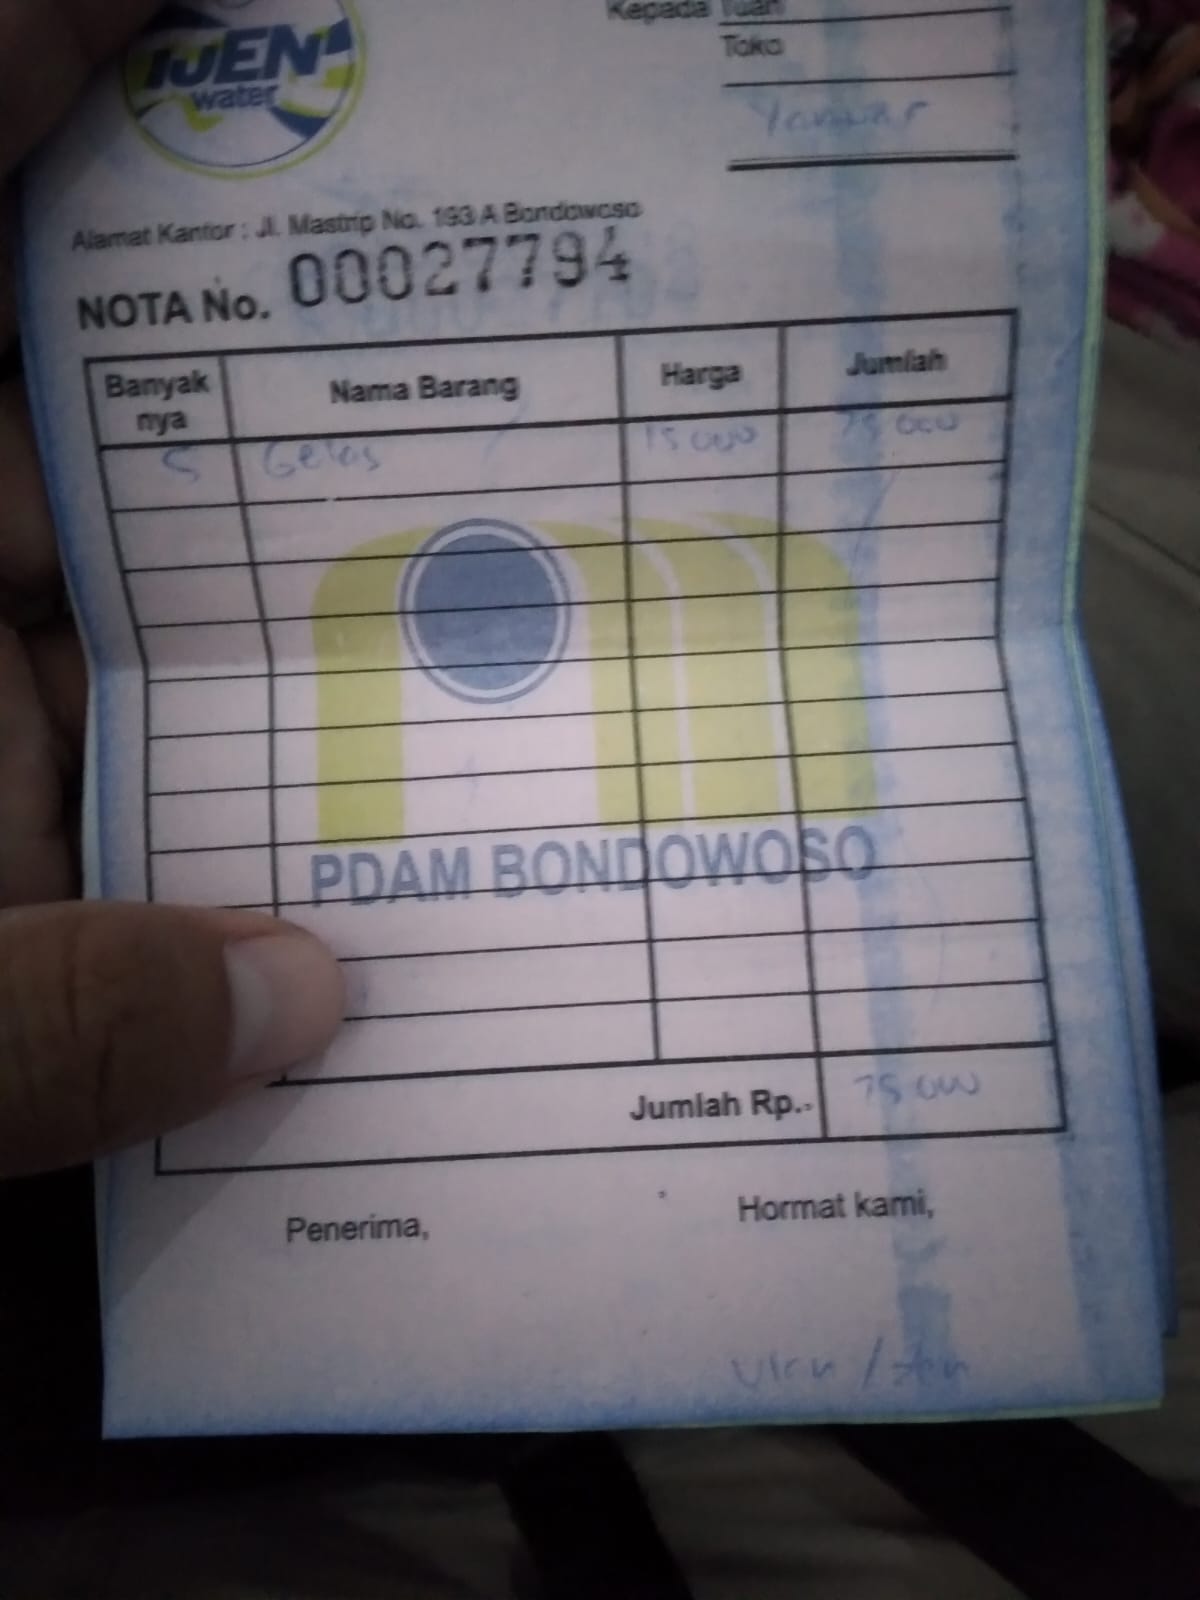 IJEN
water
Kepada Tuan
Toko
Yanuar
Alamat Kantor : Jl. Mastrip No. 193 A Bondowoso
NOTA No. 00027794
Banyak nya Nama Barang Harga Jumlah
5 Gelas 15 000 75 000
PDAM BONDOWOSO
Jumlah Rp.- 75 000
Penerima, Hormat kami,